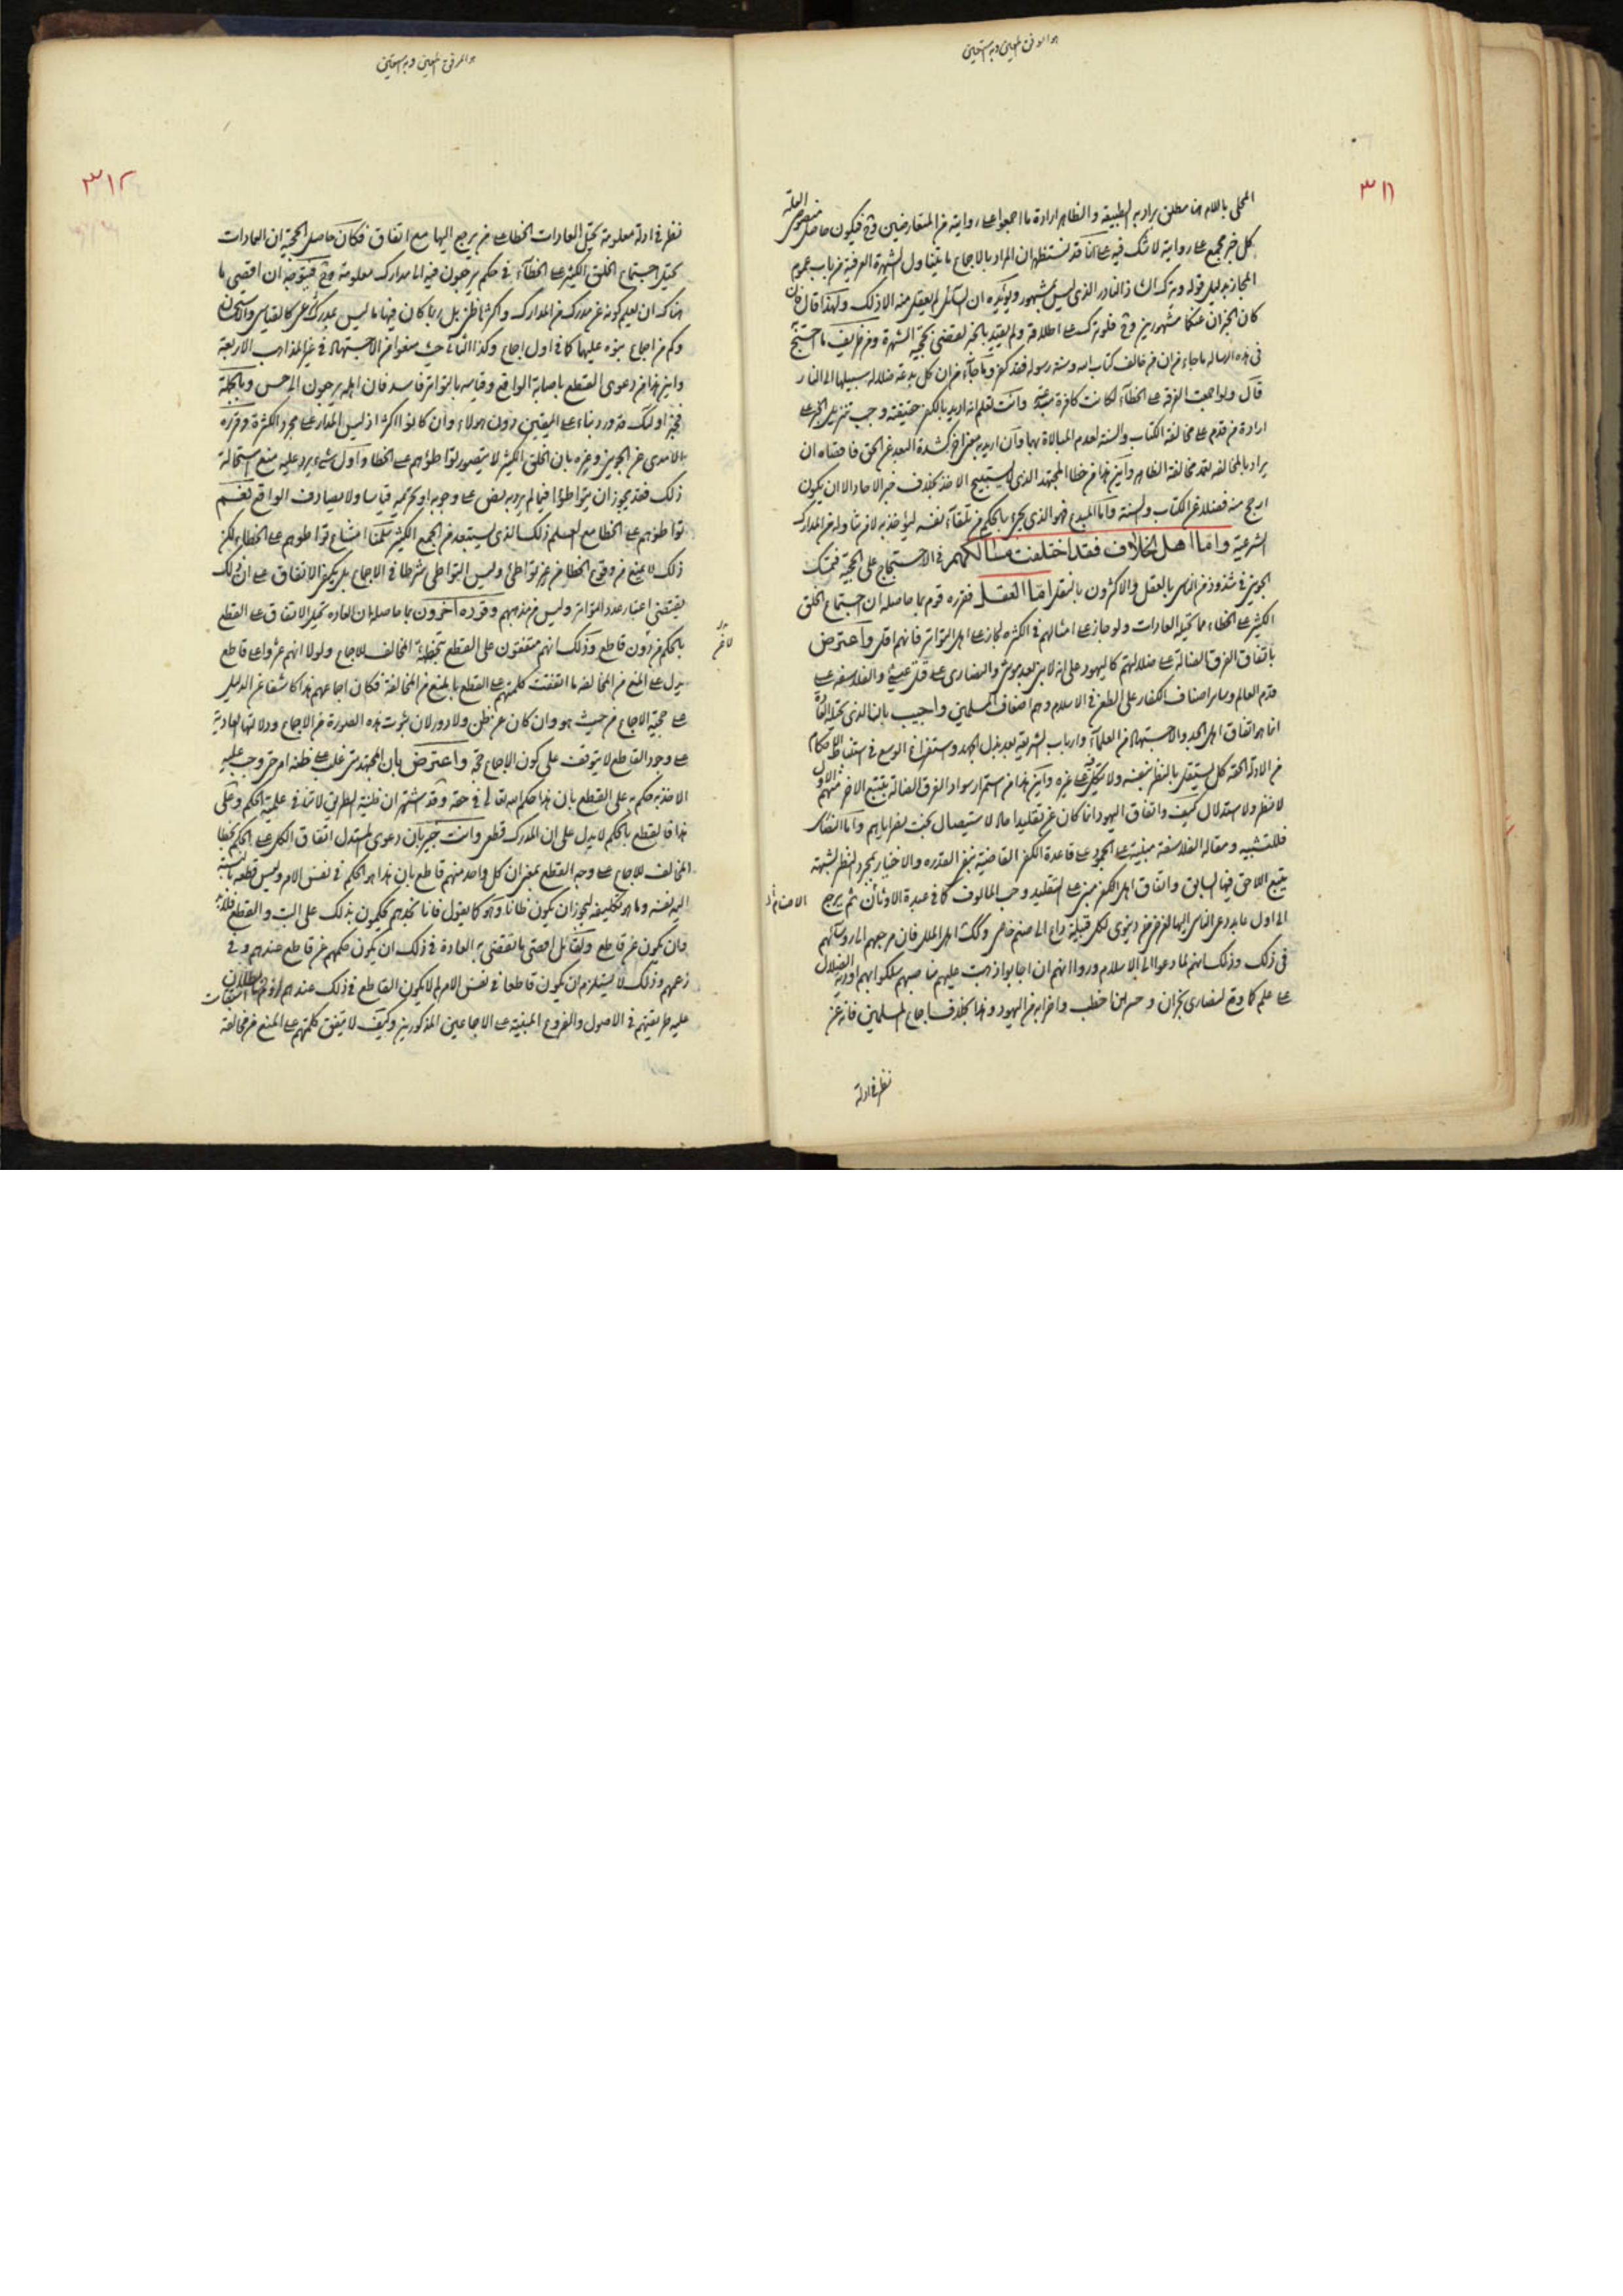 هو الموفق المعين وبه نستعين
٣١١
المحلى باللام هنا مطلق يراد به الطبيعة والظاهر ارادة ما اجمعوا على روايته من المتعارضين وح فيكون حاصل منصوص العلة
كل خبر مجمع على روايته لا شك فيه على انا قد نستظهر ان المراد بالاجماع ما يتناول الشهرة العرفية من باب عموم
المجاز بدليل قوله ويترك الشاذ النادر الذي ليس بمشهور ويؤيده ان السائل لم يعقل منه الا ذلك ولهذا قال فان
كان الخبران عنكما مشهورين وح فلو ترك على اطلاقه ولم يقيد بالخبر لقضى بحجية الشهرة ومن ظريف ما احتج
في هذه الرسالة ما جاء من ان من خالف كتاب الله وسنة رسوله فقد كفر وما جاء من ان كل بدعة ضلالة سبيلها الى النار
قال ولو اجمعت الفرقة على الخطاء لكانت كافرة مبتدعة وانت تعلم انه ان اريد بالكفر حقيقته وجب تنزيل الخبر على
ارادة من قدم على مخالفة الكتاب والسنة لعدم المبالاة بهما وان اريد به معنى اخر كشدة البعد عن الحق فاقصاه ان
يراد بالمخالفة تعمد مخالفة الظاهر واين هذا من خطا المجتهد الذي لا يستبيح الاخذ بخلاف خبر الاحاد الا ان يكون
ارجح منه فضلا عن الكتاب والسنة واما المبدع فهو الذي يجيء بالحكم من تلقاء نفسه ليؤخذ به لا من تناوله من المدارك
الشرعية واما اهل الخلاف فقد اختلفت مسالكهم في الاحتجاج على الحجية فتمسك
الجويني في شذوذ من الناس بالعقل والاكثرون بالنقل اما العقل فقرره قوم بما حاصله ان اجتماع الخلق
الكثير على الخطاء مما تحيله العادات ولو جاز على امثالهم في الكثرة لجاز على اهل التواتر فانهم اقل واعترض
باتفاق الفرق الضالة على ضلالتهم كاليهود على انه لا نبي بعد موسى والنصارى على قتل عيسى والفلاسفة على
قدم العالم وساير اصناف الكفار على الطعن في الاسلام وهم اضعاف المسلمين واجيب بان الذي تحيله العادة
انما هو اتفاق اهل الجد والاجتهاد من العلماء وارباب الشريعة بعد بذل الجهد واستفراغ الوسع في استنباط الاحكام
من الادلة الحقة كل يستقل بالنظر بنفسه ولا يتكل على غيره واين هذا من استمرار سواد الفرق الضالة يتبع الاخر منهم الاول
لا نظر ولا استدلال كيف واتفاق اليهود انما كان عن تقليد احاد لاستيصال بخت نصر اياهم واما النصارى
فللتشبيه ومقالة الفلاسفة مبنية على الجمود على قاعدة الكفر القاضية بنفي القدرة والاختيار بمجرد النظر لشبهة
يتبع اللاحق فيها السابق واتفاق اهل الكفر مبني على التقليد وحب المالوف كما في عبدة الاوثان ثم يرجع
الى اول ما يدعى الناس اليها لغرض دنيوي لكل قبيلة داع الى صنم خاص وكك اهل الملل فان مرجعهم الى رؤسائهم
في ذلك وذلك انهم لما دعوا الى الاسلام وراوا انهم ان اجابوا ذهبت عليهم مناصبهم سلكوا بهم اودية الضلال
على علم كما وقع لنصارى نجران وحسبنا حيي بن اخطب واضرابه من اليهود وهذا بخلاف اجماع المسلمين فانه عن
نظر في ادلة
هو الموفق المعين وبه نستعين
٣١٢
نظر في ادلة معلومة تحيل العادات الخطا على من يرجع اليها مع اتفاق فكان حاصل الحجية ان العادات
تحيل اجتماع الخلق الكثير على الخطاء في حكم يرجعون فيه الى مدارك معلومة وح فيتوجه ان اقصى ما
هناك ان نعلم كونه عن مدرك من المدارك واكثرها ظني بل ربما كان فيها ما ليس بمدرك شرعي كالقياس والاستحسان
وكم من اجماع بنوه عليهما كما في اول اجماع وكذا الثاني حيث منعوا من الاجتهاد في غير المذاهب الاربعة
واين هذا من دعوى القطع باصابة الواقع وقياسه بالتواتر فاسد فان اهله يرجعون الى حس وبالجملة
فخبر اولئك قد ورد بناء على اليقين دون هؤلاء وان كانوا اكثر اذ ليس المدار على مجرد الكثرة وقرره
الامدي عن الجويني وغيره بان الخلق الكثير لا يتصور تواطؤهم على الخطا واول شيء يرد عليه منع استحالة
ذلك فقد يجوز ان يتواطؤا فيما لم يرد به نص على وجوبه او تحريمه قياسا ولا يصادف الواقع نعم
تواطؤهم على الخطا مع العلم ذلك الذي يستبعد من الجمع الكثير سلمنا امتناع تواطؤهم على الخطاء لكن
ذلك لا يمنع من وقوع الخطا من غير تواطئ وليس التواطي شرطا في الاجماع بل يكفي الاتفاق على ان ذلك
يقتضي اعتبار عدد التواتر وليس من مذهبهم وقرره اخرون بما حاصله ان العادة تحيل الاتفاق على القطع
بالحكم من دون قاطع وذلك انهم متفقون على القطع بتخطئة المخالف للاجماع ولولا انهم عثروا على قاطع
يدل على المنع من المخالفة ما اتفقت كلمتهم على القطع بالمنع من المخالفة فكان اجماعهم هذا كاشفا عن الدليل
على حجية الاجماع من حيث هو وان كان عن ظن ولا دور لان ثبوت هذه الصورة من الاجماع ودلالتها العادية
على وجود القاطع لا يتوقف على كون الاجماع حجة واعترض بان المجتهد متى غلب على ظنه امر حق وجب عليه
الاخذ به حكم به على القطع بان هذا حكم الله تعالى في حقه وقد اشتهر ان ظنية الطريق لا تنافي علمية الحكم وعلى
هذا فالقطع بالحكم لا يدل على ان المدرك قطعي وانت خبير بان دعوى المستدل اتفاق الكل على الحكم بخطا
المخالف للاجماع على وجه القطع بمعنى ان كل واحد منهم قاطع بان هذا هو الحكم في نفس الامر وليس قطعه بالنسبة
اليه نفسه وما هو تكليفه ليجوز ان يكون ظانا وهو كما يقول فانا نجدهم يحكمون بذلك على البت والقطع
وان يكون عن قاطع ولقائل اقصى ما تقضي به العادة في ذلك ان يكون حكمهم عن قاطع عندهم وفي
زعمهم وذلك لا يستلزم ان يكون قاطعا في نفس الامر لم لا يكون القاطع في ذلك عندهم
عليه طريقتهم في الاصول والفروع المبنية على الاجماعين المذكورين وكيف لا يتفق كلمتهم على المنع من مخالفة